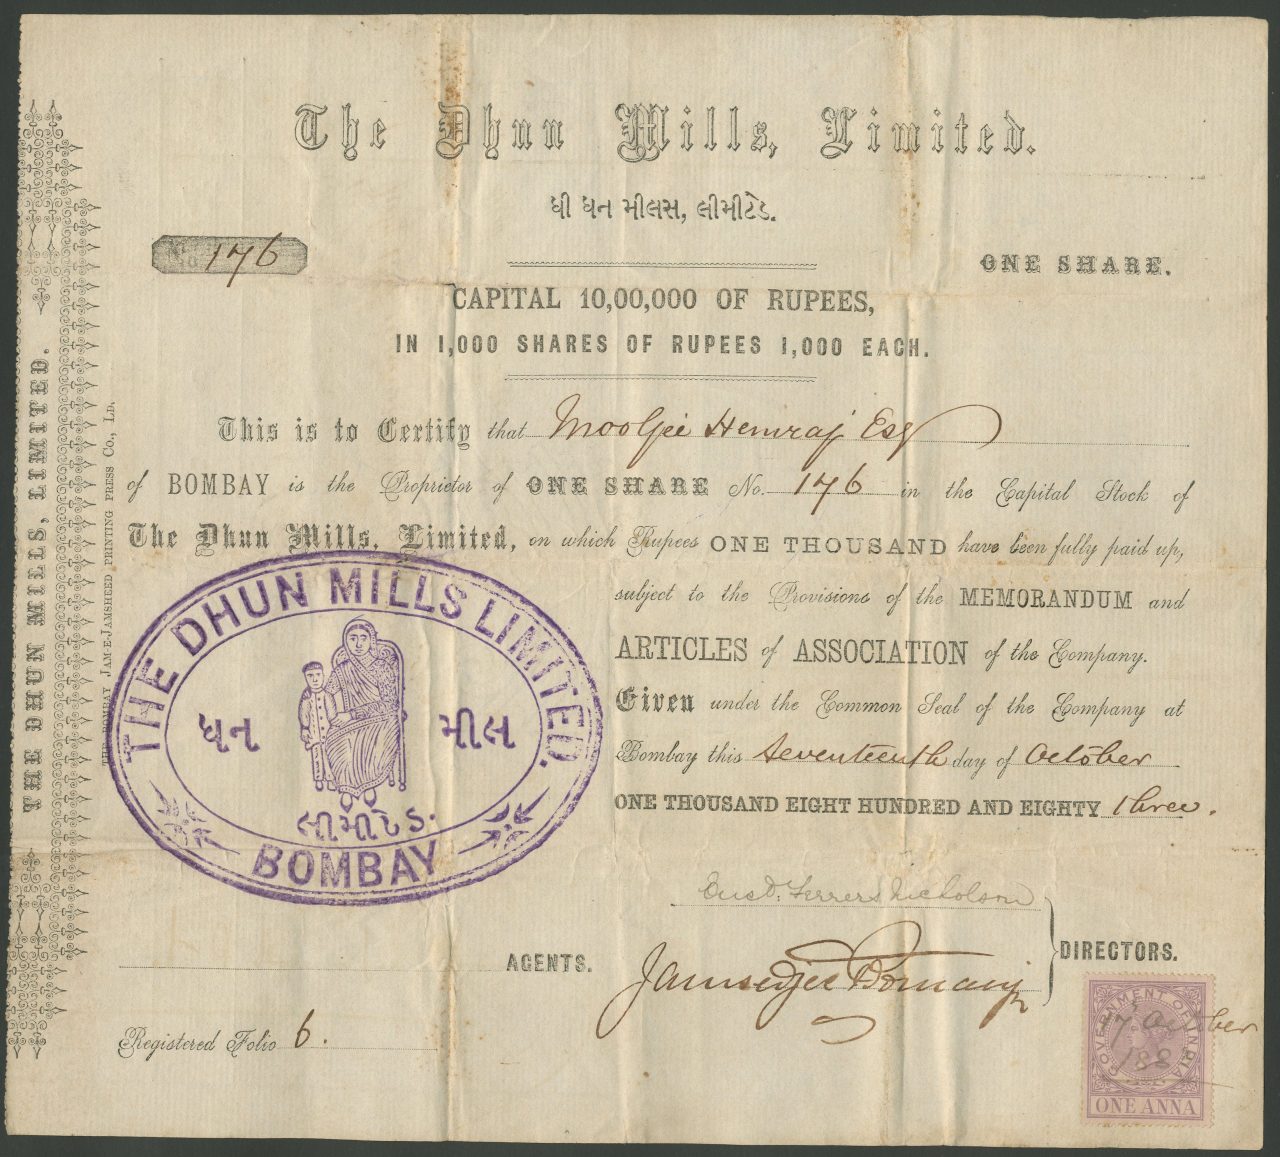 The Dhun Mills, Limited.
ધી ધન મીલસ, લીમીટેડ.
No. 176
ONE SHARE.
CAPITAL 10,00,000 OF RUPEES,
IN 1,000 SHARES OF RUPEES 1,000 EACH.
This is to Certify that Mooljee Hemraj Esq
of BOMBAY is the Proprietor of ONE SHARE No. 176 in the Capital Stock of
The Dhun Mills, Limited, on which Rupees ONE THOUSAND have been fully paid up,
subject to the Provisions of the MEMORANDUM and
ARTICLES of ASSOCIATION of the Company.
Given under the Common Seal of the Company at
Bombay this Seventeenth day of October
ONE THOUSAND EIGHT HUNDRED AND EIGHTY three.
THE DHUN MILLS LIMITED.
ધન મીલ
લીમીટેડ.
BOMBAY
Ferrers Nicholson
AGENTS.
Jamsedjee
DIRECTORS.
Registered Folio 6.
GOVERNMENT OF INDIA
17 October
188
ONE ANNA
THE DHUN MILLS, LIMITED.
THE BOMBAY JAM-E-JAMSHEED PRINTING PRESS CO., LD.